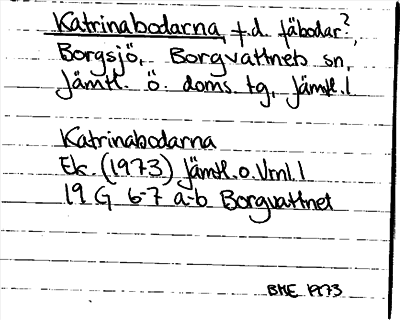 Katrinabodarna, f.d. fäbodar?,
Borgsjö, Borgvattnets sn,
Jämtl. ö. doms. tg, Jämtl. l
Katrinabodarna
Ek. (1973) Jämtl. o. Vrnl. l
19 G 6-7 a-b Borgvattnet
BME 1973